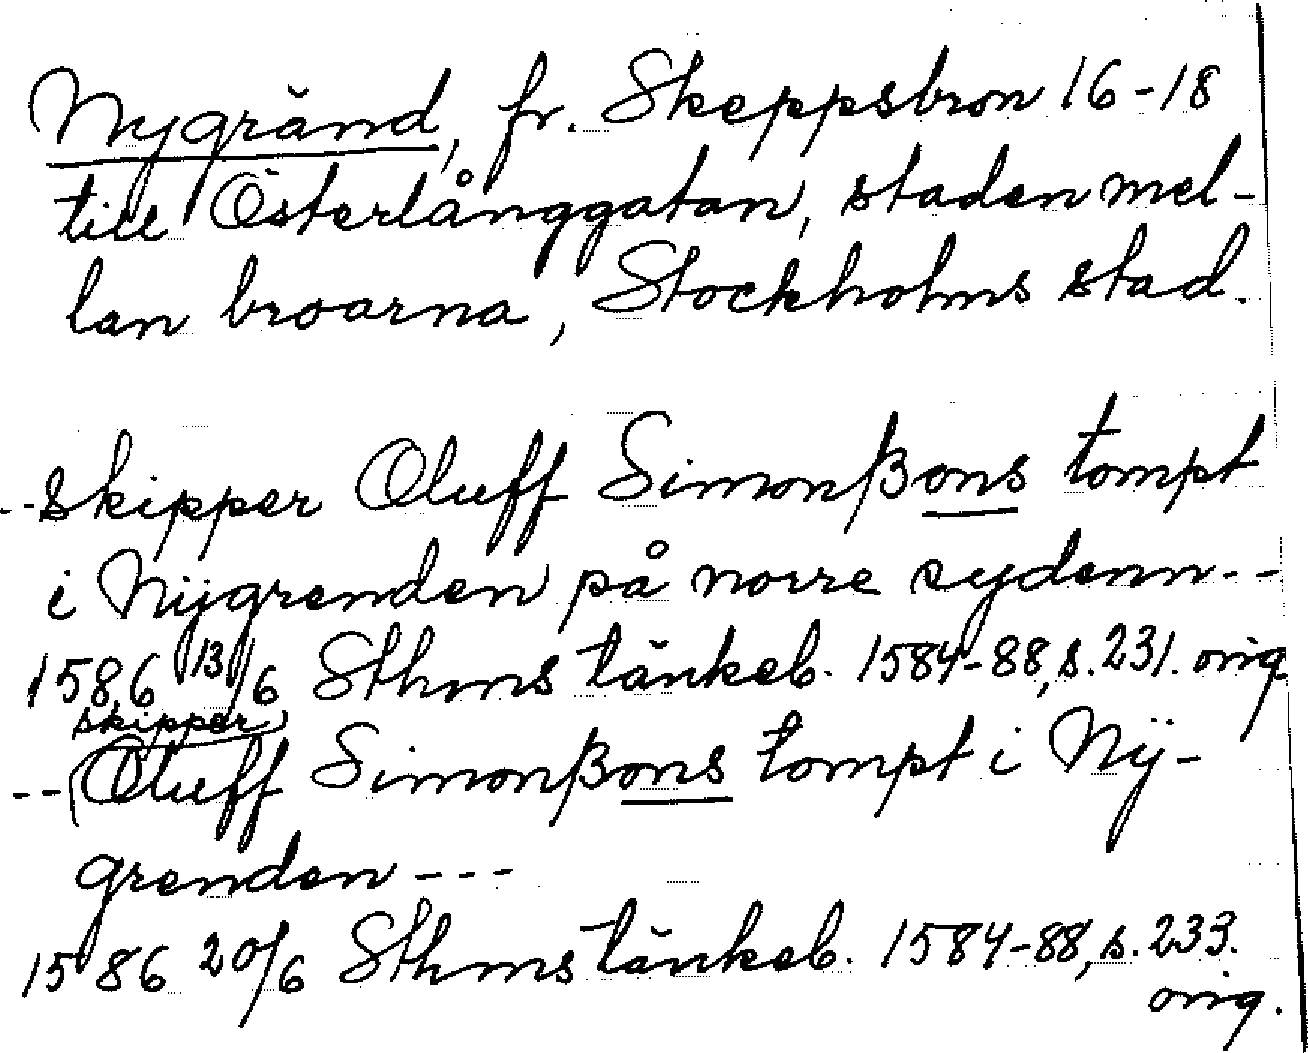 Nygränd, fr. Skeppsbron 16-18
till Österlånggatan, staden mel-
lan broarna, Stockholms stad.
--skipper Oluff Simonßons tompt
i Nÿgrenden på norre sydenn--
1586 13/6 Sthms tänkeb. 1584-88, s. 231. orig.
skipper
--Oluff Simonßons tompt i Nÿ-
grenden---
1586 20/6 Sthms tänkeb. 1584-88, s. 233.
orig.